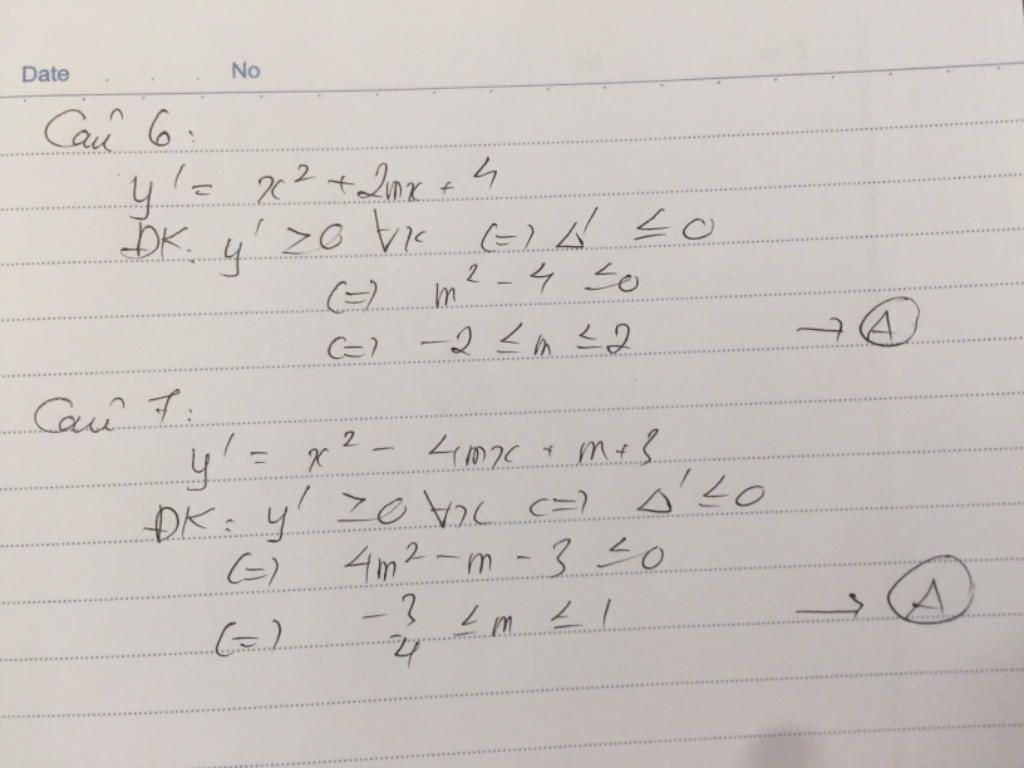 Date No
Câu 6:
y' = x² + 2mx + 4
ĐK: y' ≥ 0 ∀x (=) Δ' ≤ 0
(=) m² - 4 ≤ 0
(=) -2 ≤ m ≤ 2 → A
Câu 7:
y' = x² - 4mx + m + 3
ĐK: y' ≥ 0 ∀x (=) Δ' ≤ 0
(=) 4m² - m - 3 ≤ 0
(=) -3/4 ≤ m ≤ 1 → A